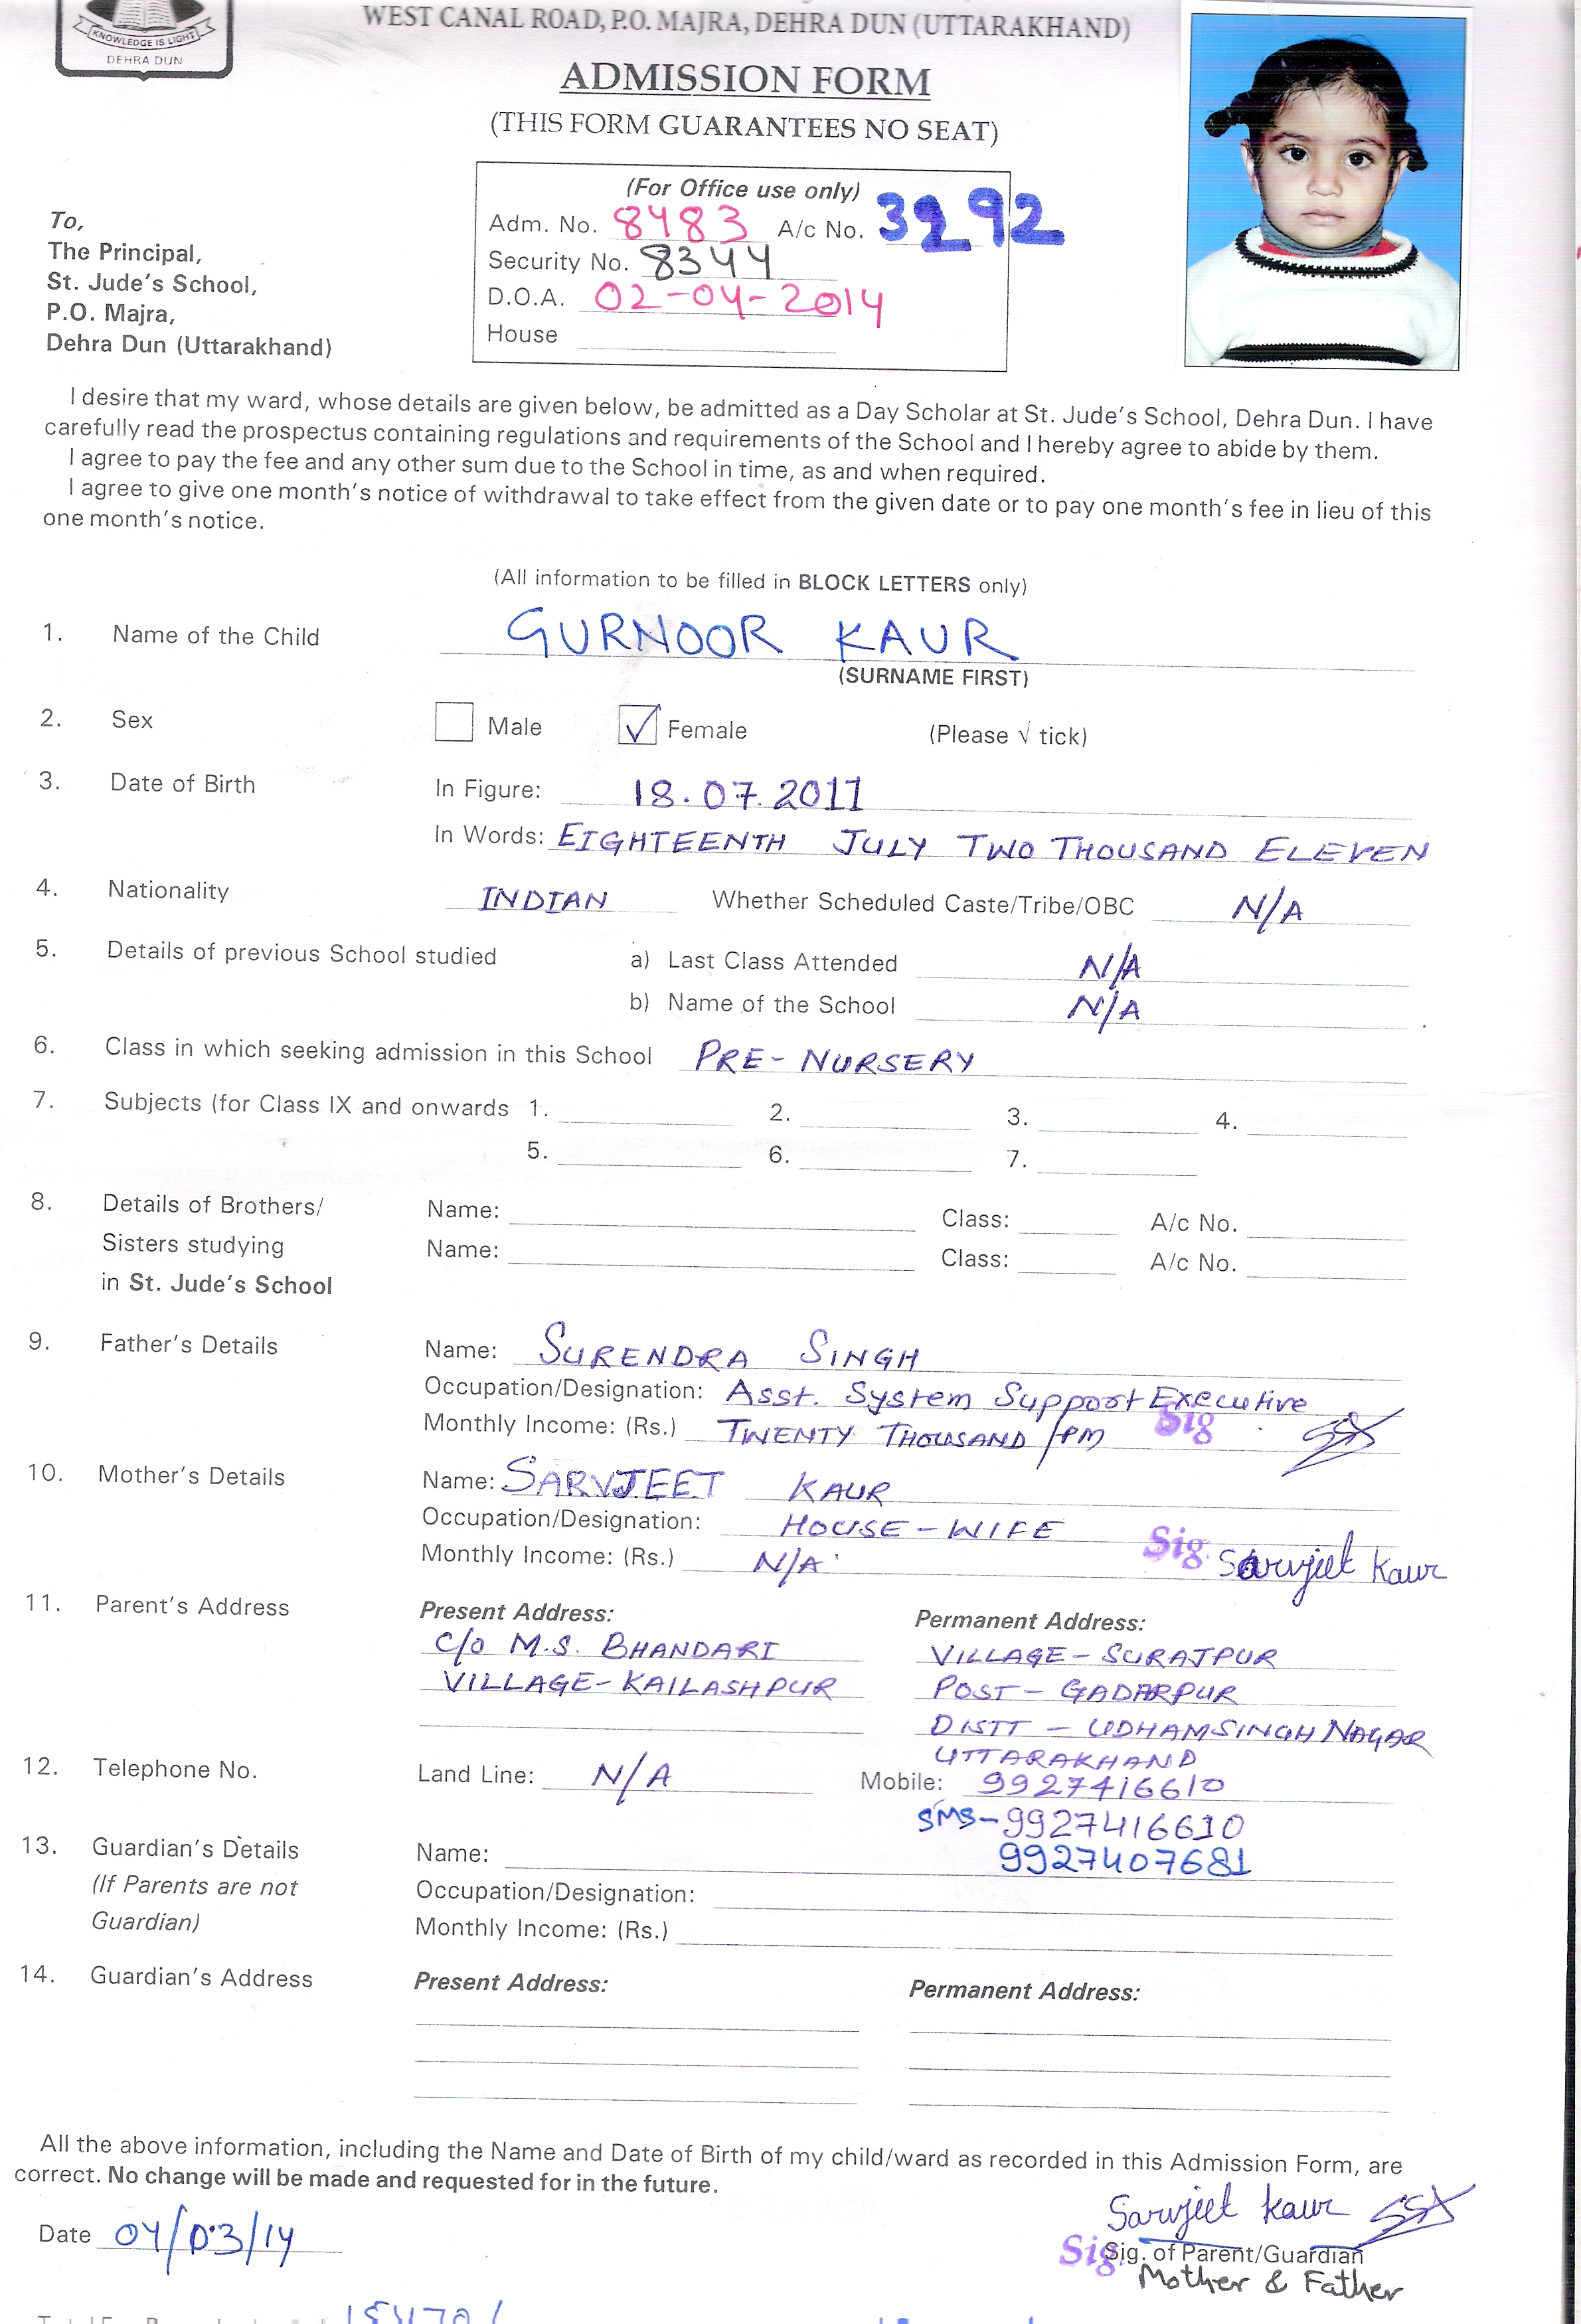 KNOWLEDGE IS LIGHT
DEHRA DUN
WEST CANAL ROAD, P.O. MAJRA, DEHRA DUN (UTTARAKHAND)
ADMISSION FORM
(THIS FORM GUARANTEES NO SEAT)
(For Office use only)
Adm. No. 8483 A/c No. 3292
Security No. 8344
D.O.A. 02-04-2014
House
To,
The Principal,
St. Jude's School,
P.O. Majra,
Dehra Dun (Uttarakhand)
I desire that my ward, whose details are given below, be admitted as a Day Scholar at St. Jude's School, Dehra Dun. I have
carefully read the prospectus containing regulations and requirements of the School and I hereby agree to abide by them.
I agree to pay the fee and any other sum due to the School in time, as and when required.
I agree to give one month's notice of withdrawal to take effect from the given date or to pay one month's fee in lieu of this
one month's notice.
(All information to be filled in BLOCK LETTERS only)
1. Name of the Child GURNOOR KAUR
(SURNAME FIRST)
2. Sex Male ✓ Female (Please √ tick)
3. Date of Birth In Figure: 18.07.2011
In Words: EIGHTEENTH JULY TWO THOUSAND ELEVEN
4. Nationality INDIAN Whether Scheduled Caste/Tribe/OBC N/A
5. Details of previous School studied a) Last Class Attended N/A
b) Name of the School N/A
6. Class in which seeking admission in this School PRE-NURSERY
7. Subjects (for Class IX and onwards 1. 2. 3. 4.
5. 6. 7.
8. Details of Brothers/ Name: Class: A/c No.
Sisters studying Name: Class: A/c No.
in St. Jude's School
9. Father's Details Name: SURENDRA SINGH
Occupation/Designation: Asst. System Support Executive
Monthly Income: (Rs.) TWENTY THOUSAND /PM Sig
10. Mother's Details Name: SARVJEET KAUR
Occupation/Designation: HOUSE-WIFE
Monthly Income: (Rs.) N/A Sig. Sarvjeet Kaur
11. Parent's Address Present Address: Permanent Address:
C/o M.S. BHANDARI VILLAGE-SURAJPUR
VILLAGE-KAILASHPUR POST-GADARPUR
DISTT-UDHAMSINGH NAGAR
UTTARAKHAND
12. Telephone No. Land Line: N/A Mobile: 9927416610
SMS-9927416610
9927407681
13. Guardian's Details Name:
(If Parents are not Occupation/Designation:
Guardian) Monthly Income: (Rs.)
14. Guardian's Address Present Address: Permanent Address:
All the above information, including the Name and Date of Birth of my child/ward as recorded in this Admission Form, are
correct. No change will be made and requested for in the future.
Sarvjeet Kaur
Date 04/03/14
Sig. Sig. of Parent/Guardian
Mother & Father